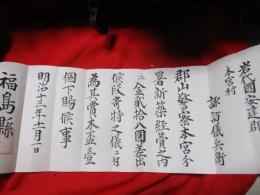 岩代國安達郡
本宮村
諏訪儀兵衛
郡山警察本宮分
署新築経費之内
江金貳拾八圓差出
候段奇特之儀ニ付
為其賞木盃壹
個下賜候事
明治十三年十一月一日
福島縣